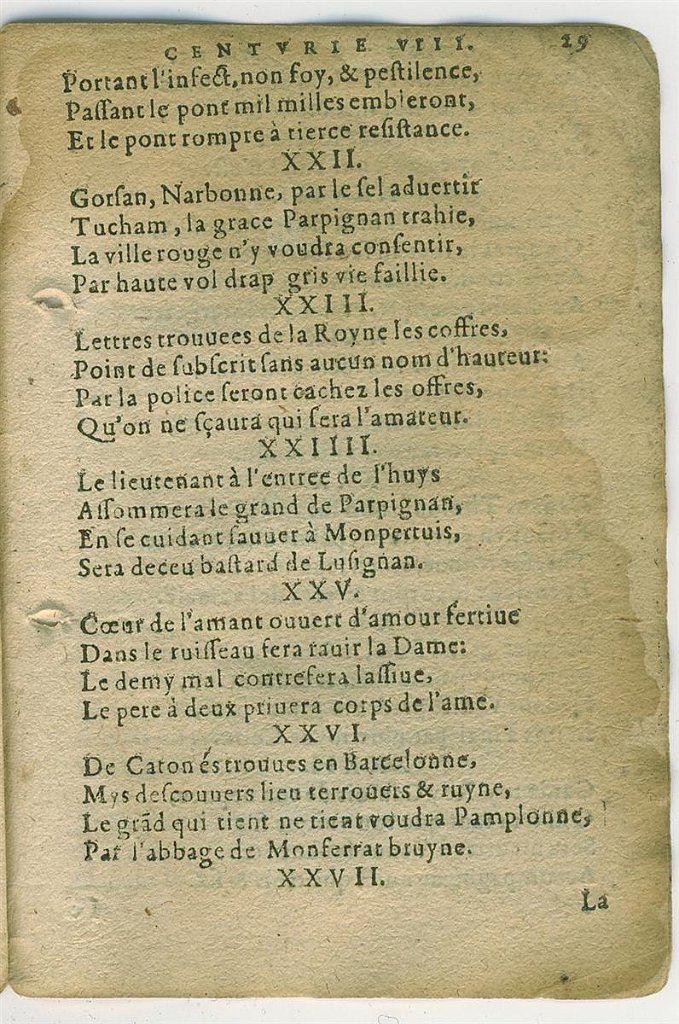 CENTVRIE VIII. 29
Portant l'infect, non foy, & pestilence,
Passant le pont mil milles embleront,
Et le pont rompre à tierce resistance.
XXII.
Gorsan, Narbonne, par le sel aduertir
Tucham, la grace Parpignan trahie,
La ville rouge n'y voudra consentir,
Par haute vol drap gris vie faillie.
XXIII.
Lettres trouuees de la Royne les coffres,
Point de subscrit sans aucun nom d'hauteur:
Par la police seront cachez les offres,
Qu'on ne sçaura qui sera l'amateur.
XXIIII.
Le lieutenant à l'entree de l'huys
Assommera le grand de Parpignan,
En se cuidant sauuer à Monpertuis,
Sera deceu bastard de Lusignan.
XXV.
Cœur de l'amant ouuert d'amour fertiue
Dans le ruisseau fera rauir la Dame:
Le demy mal contrefera lassiue,
Le pere à deux priuera corps de l'ame.
XXVI.
De Caton és trouues en Barcelonne,
Mys descouuers lieu terrouers & ruyne,
Le grãd qui tient ne tient voudra Pamplonne,
Par l'abbage de Monferrat bruyne.
XXVII.
La